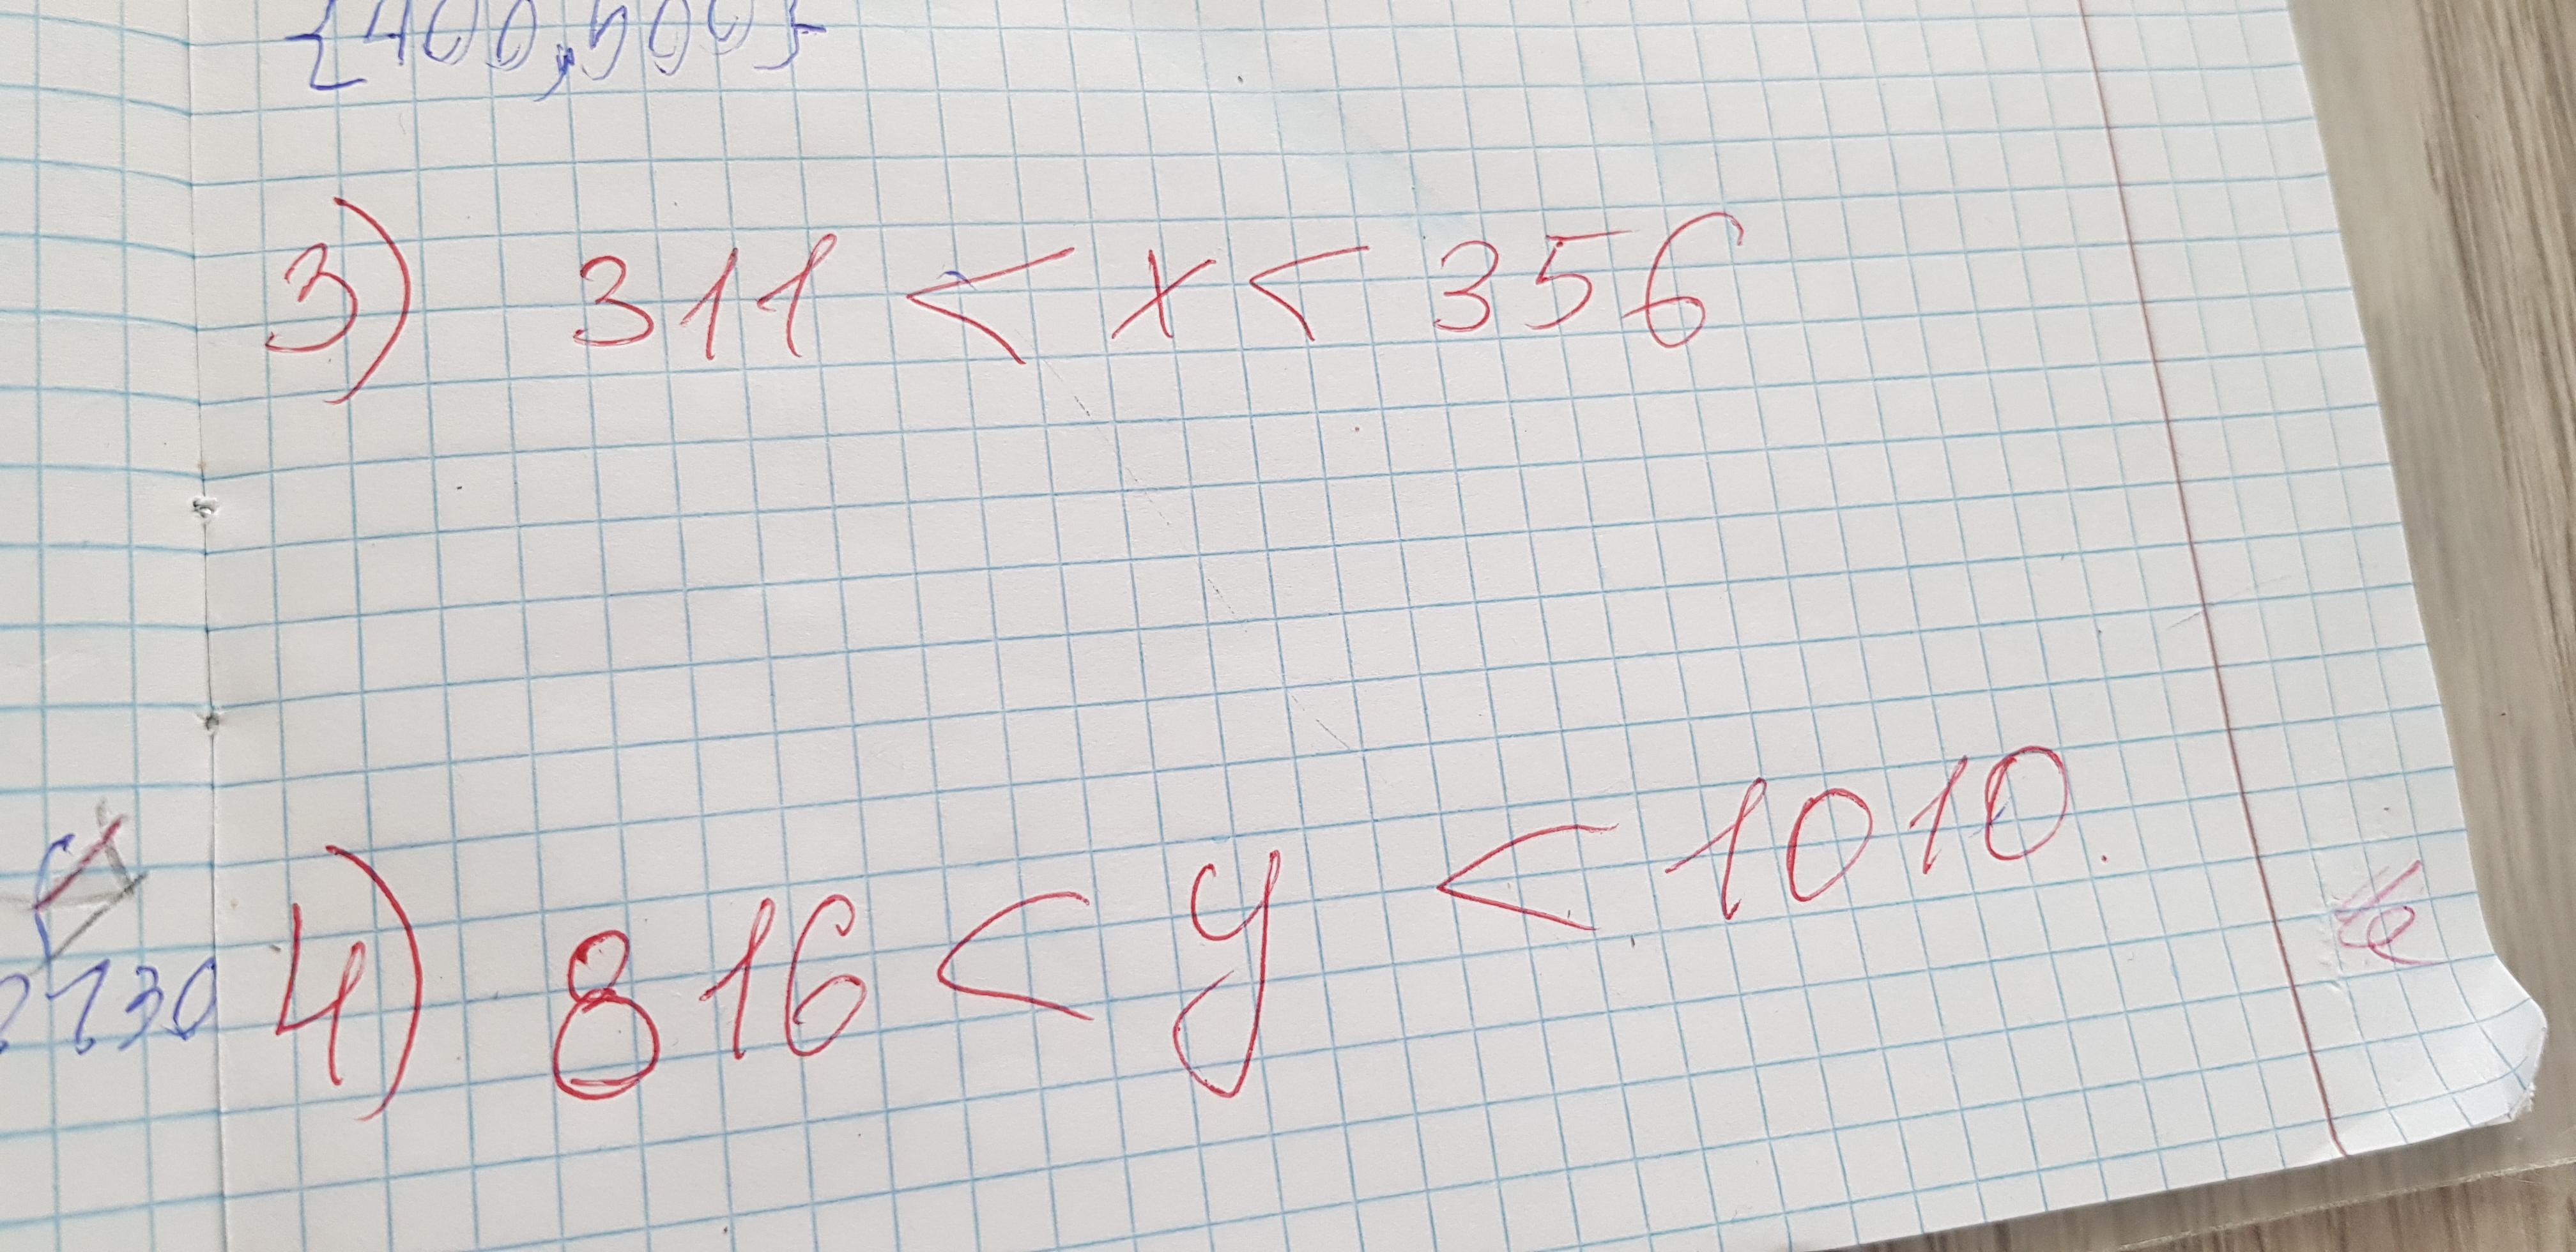 {400,500}
3) 311 < x < 356
4) 816 < y < 1010.
2730